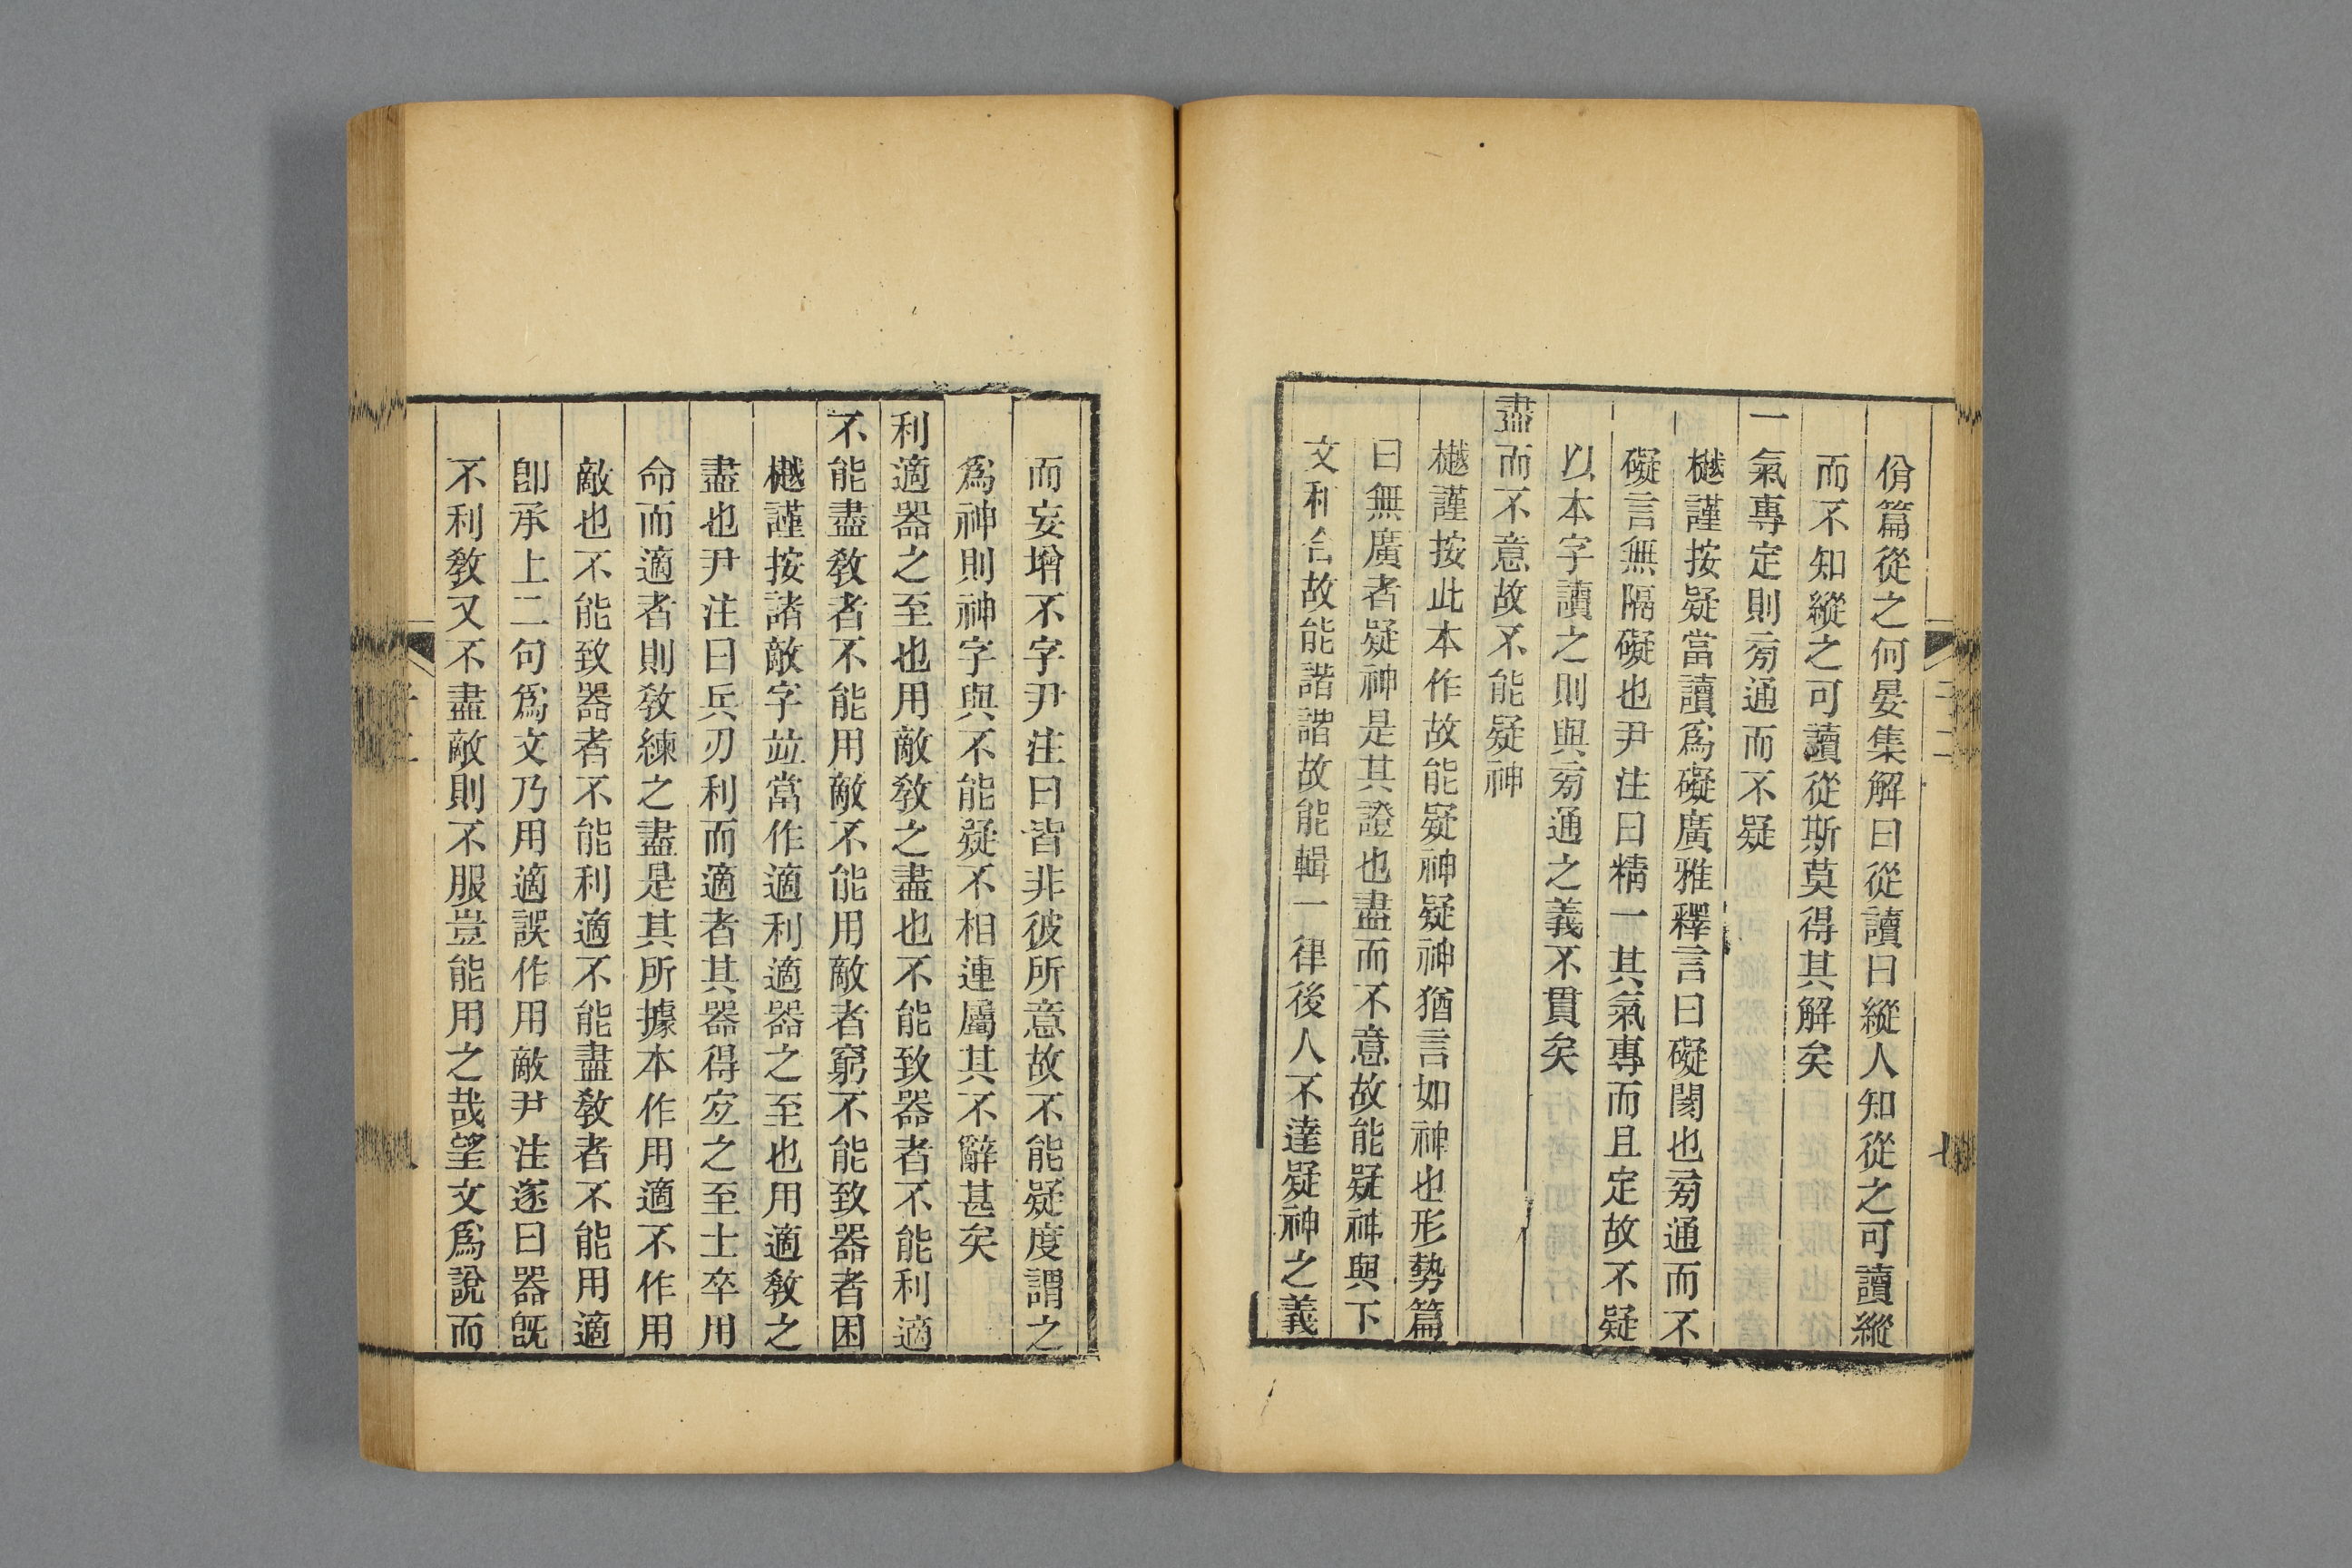 佾篇從之何晏集解曰從讀曰縱人知從之可讀縱
而不知縱之可讀從斯莫得其解矣
一氣專定則㫄通而不疑
樾謹按疑當讀爲礙廣雅釋言曰礙閡也㫄通而不
礙言無隔礙也尹注曰精一其氣專而且定故不疑
以本字讀之則與㫄通之義不貫矣
盡而不意故不能疑神
樾謹按此本作故能疑神疑神猶言如神也形勢篇
曰無廣者疑神是其證也盡而不意故能疑神與下
文利合故能諧諧故能輯一律後人不達疑神之義
而妄增不字尹注曰皆非彼所意故不能疑度謂之
爲神則神字與不能疑不相連屬其不辭甚矣
利適器之至也用敵敎之盡也不能致器者不能利適
不能盡敎者不能用敵不能用敵者窮不能致器者困
樾謹按諸敵字竝當作適利適器之至也用適敎之
盡也尹注曰兵刃利而適者其器得宐之至士卒用
命而適者則敎練之盡是其所據本作用適不作用
敵也不能致器者不能利適不能盡敎者不能用適
卽承上二句爲文乃用適誤作用敵尹注遂曰器旣
不利敎又不盡敵則不服豈能用之哉望文爲說而